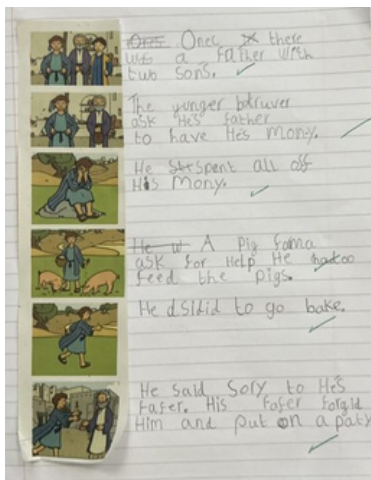 Onec there
was a Father with
two sons.
The yunger bdruver
ask He's father
to have He's mony.
He spent all off
His mony.
A pig fama
ask for Help He hadtoo
feed the pigs.
He dsidid to go bake.
He said sory to He's
fafer. His fafer forgid
Him and put on a paty